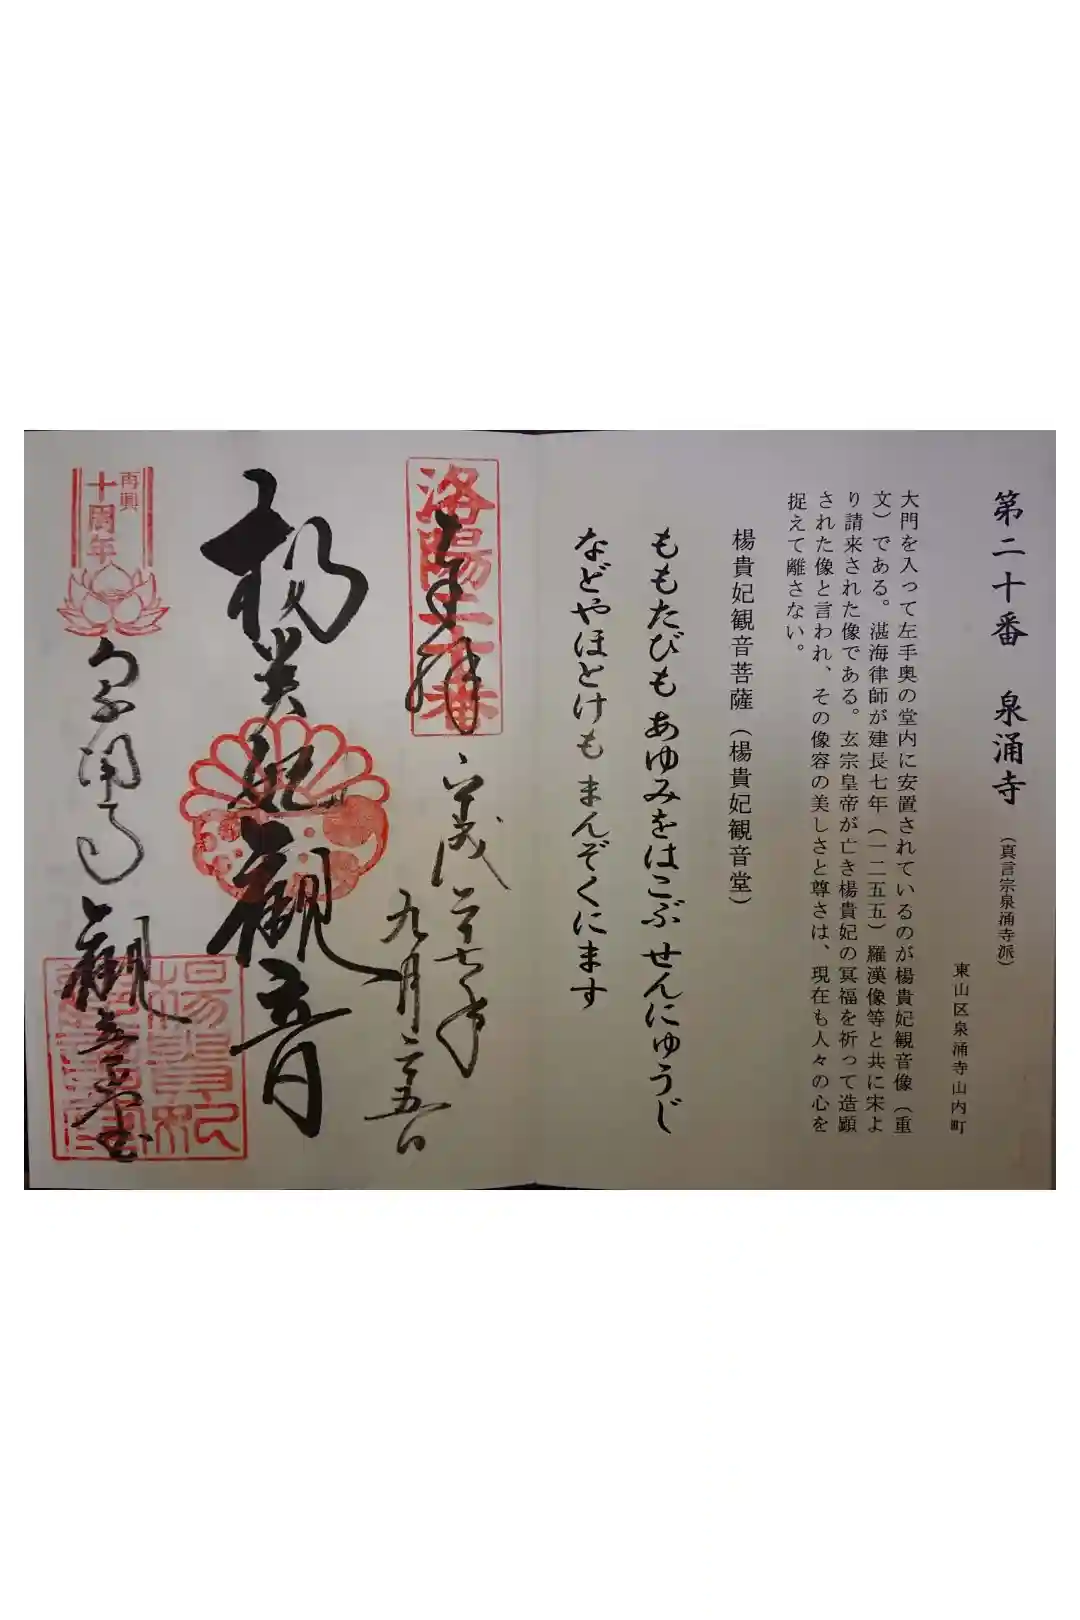 第二十番 泉涌寺（真言宗泉涌寺派）
東山区泉涌寺山内町
大門を入って左手奥の堂内に安置されているのが楊貴妃観音像（重
文）である。湛海律師が建長七年（一二五五）羅漢像等と共に宋よ
り請来された像である。玄宗皇帝が亡き楊貴妃の冥福を祈って造顕
された像と言われ、その像容の美しさと尊さは、現在も人々の心を
捉えて離さない。
楊貴妃観音菩薩（楊貴妃観音堂）
ももたびも あゆみをはこぶ せんにゅうじ
などやほとけも まんぞくにます
洛陽二十番
奉拝
平成二十七年
九月二十五日
楊貴妃観音
再興
十周年
泉涌寺 観音堂